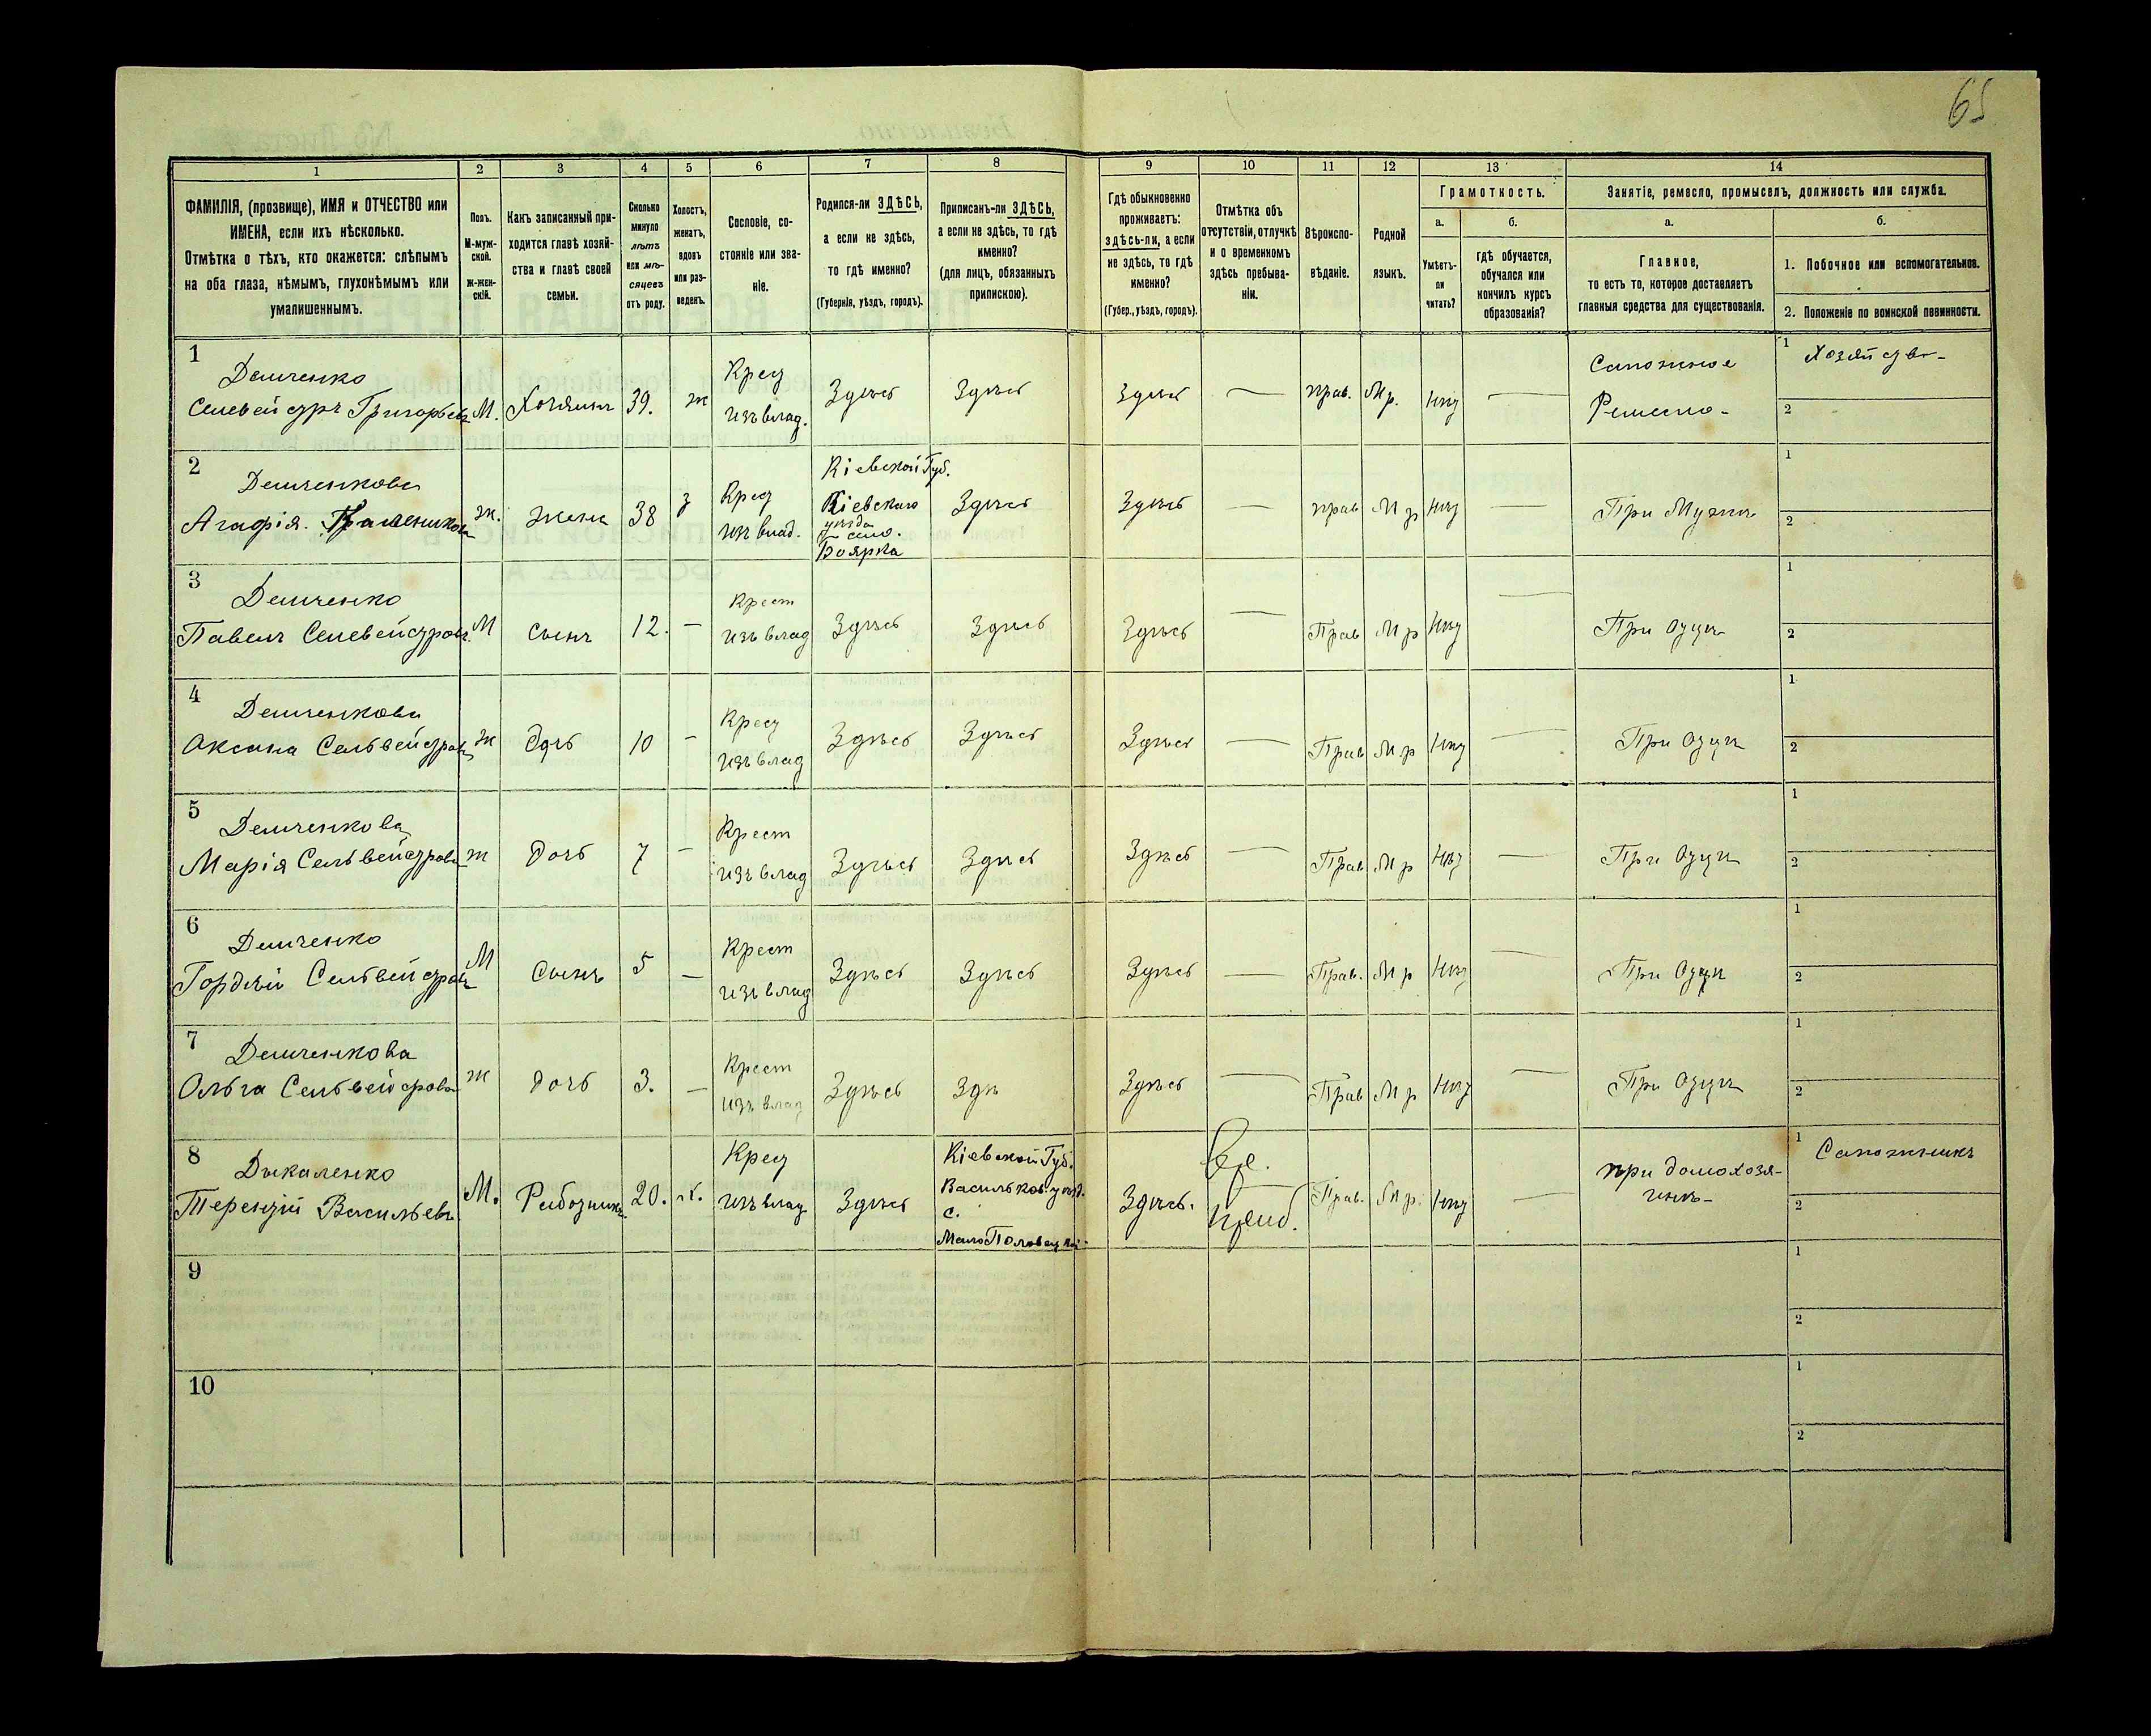 65
1 2 3 4 5 6 7 8 9 10 11 12 13 14
ФАМИЛІЯ, (прозвище), ИМЯ и ОТЧЕСТВО или
ИМЕНА, если ихъ нѣсколько.
Отмѣтка о тѣхъ, кто окажется: слѣпымъ
на оба глаза, нѣмымъ, глухонѣмымъ или
умалишеннымъ.
Полъ.
М-муж-
ской.
Ж-жен-
скій.
Какъ записанный при-
ходится главѣ хозяй-
ства и главѣ своей
семьи.
Сколько
минуло
лѣтъ
или мѣ-
сяцевъ
отъ роду.
Холостъ,
женатъ,
вдовъ
или раз-
веденъ.
Сословіе, со-
стояніе или зва-
ніе.
Родился-ли ЗДѢСЬ,
а если не здѣсь,
то гдѣ именно?
(Губернія, уѣздъ, городъ).
Приписанъ-ли ЗДѢСЬ,
а если не здѣсь, то гдѣ
именно?
(для лицъ, обязанныхъ
припискою).
Гдѣ обыкновенно
проживаетъ:
здѣсь-ли, а если
не здѣсь, то гдѣ
именно?
(Губер., уѣздъ, городъ).
Отмѣтка объ
отсутствіи, отлучкѣ
и о временномъ
здѣсь пребыва-
ніи.
Вѣроиспо-
вѣданіе.
Родной
языкъ.
Грамотность.
а.
Умѣетъ-
ли
читать?
б.
гдѣ обучается,
обучался или
кончилъ курсъ
образованія?
Занятіе, ремесло, промыселъ, должность или служба.
а.
Главное,
то есть то, которое доставляетъ
главныя средства для существованія.
б.
1. Побочное или вспомогательное.
2. Положеніе по воинской повинности.
1
Демченко
Селвейстръ Григорьевъ М. Хозяинъ 39. ж
Крест
изъ влад.
Здѣсь Здѣсь Здѣсь — прав. Мр. нѣт —
Сапожное
Ремесло-
1 Хозяйство-
2
2
Демченкова
Агафія. ж. жена 38 з
Крест
изъ влад.
Кіевской Губ.
Кіевского
уѣзда
село.
Боярка
Здѣсь Здѣсь — прав М р нѣт — При Мужѣ
1
2
3
Демченко
Павелъ Селевейстровъ. М Сынъ 12. —
Крест
изъ влад
Здѣсь Здѣсь Здѣсь — Прав М р нѣт — При отцѣ
1
2
4
Демченкова
Оксана Селвейстров ж Дочь 10 -
Крест
изъ влад
Здѣсь Здѣсь Здѣсь — Прав М р нѣт — При отцѣ
1
2
5
Демченкова
Марія Селвейстрова ж дочь 7 -
Крест
изъ влад
Здѣсь Здѣсь Здѣсь — Прав М р нѣт — При отцѣ
1
2
6
Демченко
Гордѣй Селвейстровъ М Сынъ 5 —
Крест
изъ влад
Здѣсь Здѣсь Здѣсь — Прав. М р нѣт — При отцѣ
1
2
7
Демченкова
Ольга Селвейстрова ж дочь 3. —
Крест
изъ влад
Здѣсь Здѣ Здѣсь — Прав М р нѣт — При отцѣ
1
2
8
Дыкаленко
Терентій Васильевъ М. Работникъ 20. х.
Крест
изъ влад
Здѣсь
Кіевской Губ.
Васильков. уѣзд.
с.
Мало Половецкой
Здѣсь.
вр.
преб.
Прав. М р. нѣт —
при домохозя-
инѣ-
1 Сапожникъ
2
9
1
2
10
1
2